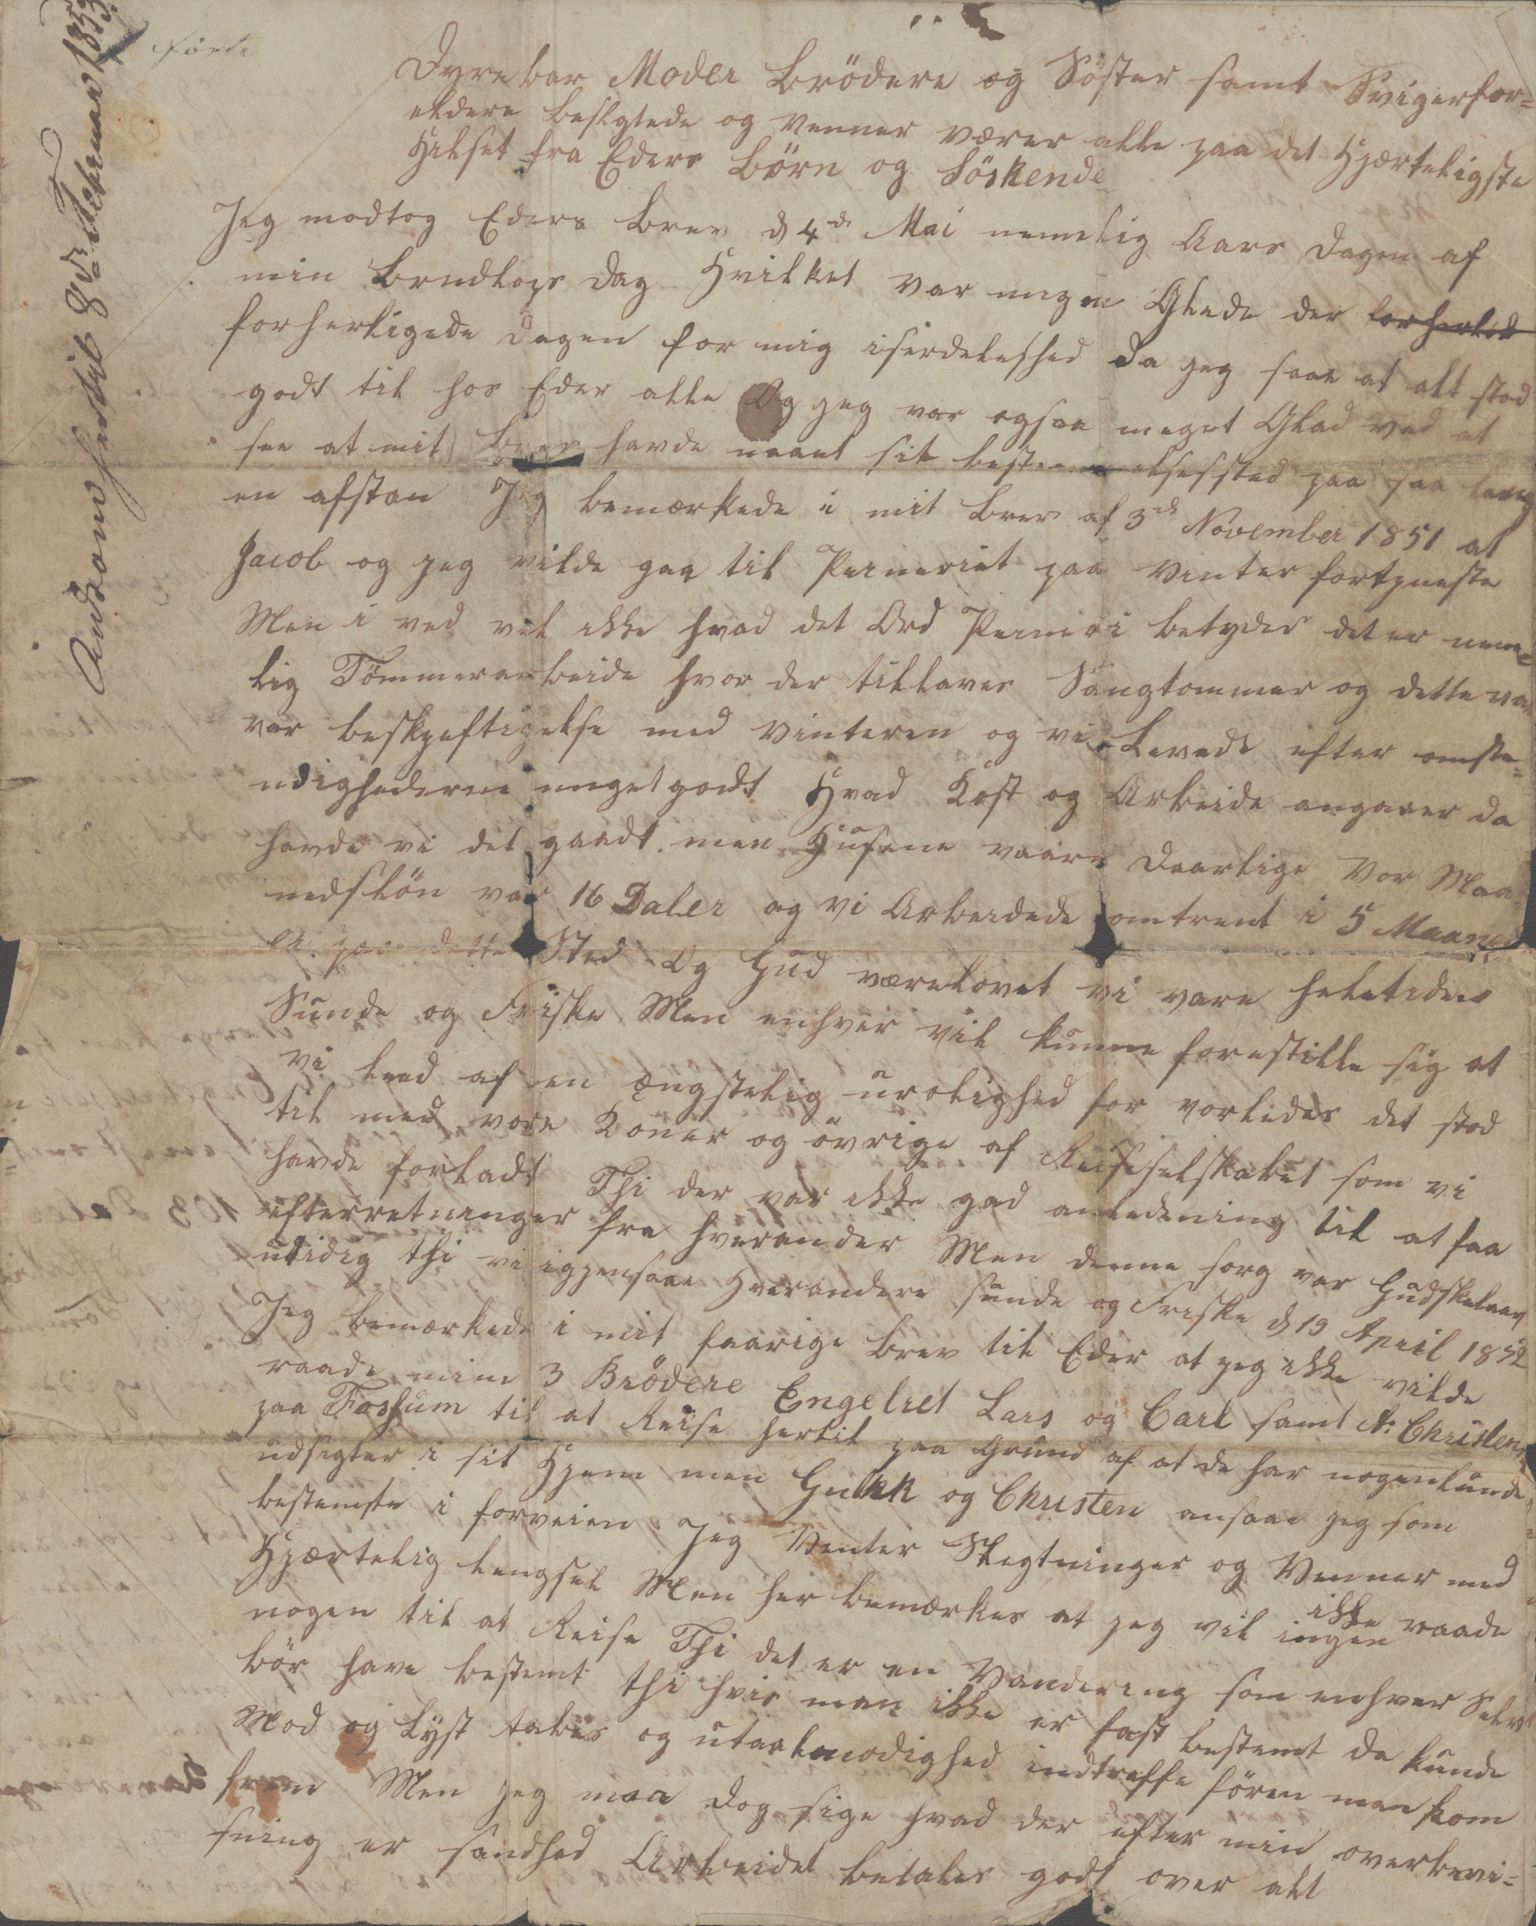 Ankom hertil 8de Februar 1853
Dyrebar Moder Brödere og Söster samt Svigerfor=
ældere Beslgtede og Venner værer alle paa det Hjærteligste
Hilset fra Eders Börn og Söskende
Jeg modtog Eders Brev d 4de Mai nemelig Aars Dagen af
min Brudlops Dag Hvilket var migen Glede der forherled
forherligede Dagen for mig iserdeleshed da jeg saae at alt stod
godt til hos Eder alle Og jeg var ogsaa meget Glad ved at
see at mit Brev havde naaet sit bestemelsessted paa saa lang
en afstan Jeg bemærkede i mit Brev af 3de November 1851 at
Jacob og jeg vilde gaa til Peineriet paa Vinter fortjeneste
Men i ved vel ikke hvad det Ord Peineri betyder det er neme=
lig Tömmerarbeide hvor der tillaves Saugtommer og dette var
vor beskjeftigelse med Vinteren og vi Levede efter omste=
ndighederne meget godt Hvad Kost og Arbeide angaaer da
havde vi det gaadt men Husene vaare Daarlige Vor Maa
nedslön var 16 Daler og vi Arbeidede omtrent i 5 Maaned
er paa dette Sted Og Gud værelovet vi vare heletiden
Sunde og Friske Men enhver vil kunne forestille sig at
vi leed af en ængstelig urolighed for vorledes det stod
til med vore Koner og övrige af Reiseselskabet som vi
havde forladt Thi der var ikke god anledening til at faa
efterretninger fra hverander Men denne sorg var Gudskelaav
utidig thi vi igjensaae Hverandere sunde og Friske d 19 April 1852
Jeg bemærkede i mit faarige Brev til Eder at jeg ikke vilde
raade mine 3 Brödere Engebret Lars og Carl samt A: Christen
paa Fossum til at Reise hertil paa Grund af at de har nogenlunde
udsigter i sit Hjem men Gulkk og Christen ansaae jeg som
bestemte i forveien Jeg Venter Slegtninger og Venner med
Hjærtelig lengsel Men her bemærkes at jeg vil ingen ikke raade
nogen til at Reise Thi det er en Vandering som enhver Selv
bör have bestemt thi hvis man ikke er fast bestemt da kunde
Mod og Lyst tabes og utaalmodighed indtreffe fören man kom
frem Men jeg maa dog sige hvad der efter min overbevi=
sning er sandhed Arbeidet betales godt over alt